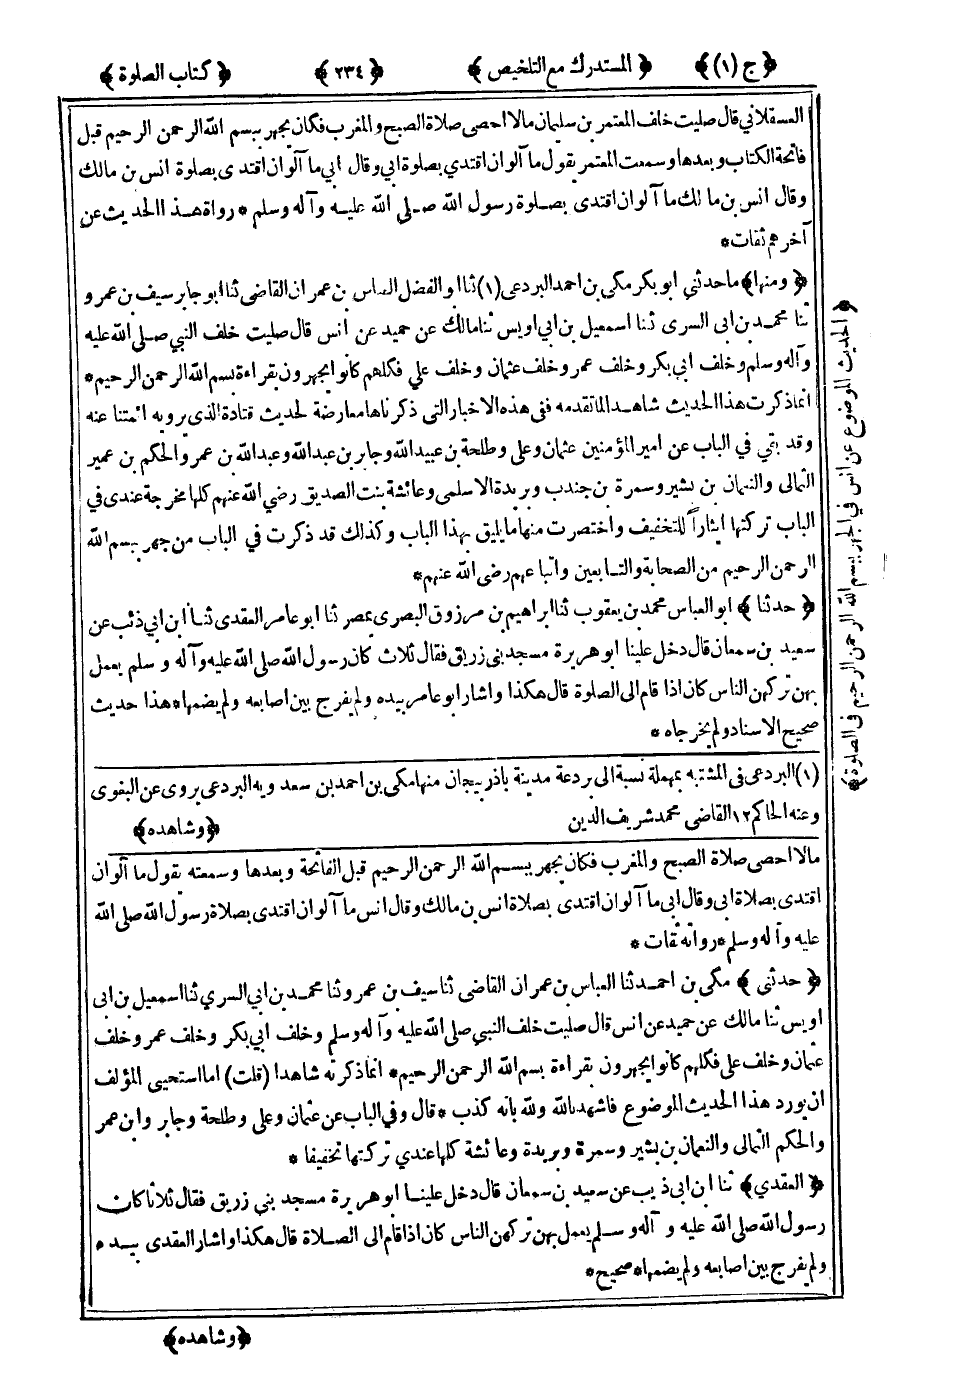 ﴿ ج (١) ﴾ ﴿ المستدرك مع التلخيص ﴾ ﴿ ٢٣٤ ﴾ ﴿ كتاب الصلوة ﴾
العسقلاني قال صليت خلف المعتمر بن سليمان مالا احصى صلاة الصبح والمغرب فكان يجهر ببسم الله الرحمن الرحيم قبل
فاتحة الكتاب وبعدها وسمعت المعتمر يقول ما آلو ان اقتدي بصلوة ابي وقال ابي ما آلو ان اقتدى بصلوة انس بن مالك
وقال انس بن مالك ما آلو ان اقتدى بصلوة رسول الله صلى الله عليه وآله وسلم * رواة هذا الحديث عن
آخرهم ثقات *
﴿ ومنها ﴾ ما حدثني ابو بكر مكى بن احمد البردعى (١) ثنا ابو الفضل العباس بن عمران القاضى ثنا ابو جابر سيف بن عمرو
ثنا محمد بن ابى السرى ثنا اسمعيل بن ابي اويس ثنا مالك عن حميد عن انس قال صليت خلف النبي صلى الله عليه
وآله وسلم وخلف ابي بكر وخلف عمر وخلف عثمان وخلف علي فكلهم كانوا يجهرون بقراءة بسم الله الرحمن الرحيم *
انما ذكرت هذا الحديث شاهدا لما تقدمه ففى هذه الاخبار التى ذكرناها معارضة لحديث قتادة الذى يرويه ائمتنا عنه
وقد بقي في الباب عن امير المؤمنين عثمان وعلى وطلحة بن عبيد الله وجابر بن عبد الله وعبد الله بن عمر والحكم بن عمير
الثمالى والنعمان بن بشير وسمرة بن جندب وبريدة الاسلمى وعائشة بنت الصديق رضي الله عنهم كلها مخرجة عندى في
الباب تركتها ايثاراً للتخفيف واختصرت منها ما يليق بهذا الباب وكذلك قد ذكرت في الباب من جهر ببسم الله
الرحمن الرحيم من الصحابة والتابعين واتباعهم رضى الله عنهم *
﴿ حدثنا ﴾ ابو العباس محمد بن يعقوب ثنا ابراهيم بن مرزوق البصرى بمصر ثنا ابو عامر العقدى ثنا ابن ابي ذئب عن
سعيد بن سمعان قال دخل علينا ابو هريرة مسجد بنى زريق فقال ثلاث كان رسول الله صلى الله عليه وآله وسلم يعمل
بهن تركهن الناس كان اذا قام الى الصلوة قال هكذا واشار ابو عامر بيده ولم يفرج بين اصابعه ولم يضمها * هذا حديث
صحيح الاسناد ولم يخرجاه *
(١) البردعى فى المشتبه بمهملة نسبة الى بردعة مدينة باذربيجان منها مكى بن احمد بن سعدويه البردعى يروى عن البغوى
وعنه الحاكم ١٢ القاضى محمد شريف الدين ﴿ وشاهده ﴾
مالا احصى صلاة الصبح والمغرب فكان يجهر ببسم الله الرحمن الرحيم قبل الفاتحة وبعدها وسمعته يقول ما آلو ان
اقتدى بصلاة ابى وقال ابى ما آلو ان اقتدى بصلاة انس بن مالك وقال انس ما آلو ان اقتدى بصلاة رسول الله صلى الله
عليه وآله وسلم * رواته ثقات *
﴿ حدثنى ﴾ مكي بن احمد ثنا العباس بن عمران القاضى ثنا سيف بن عمرو ثنا محمد بن ابي السري ثنا اسمعيل بن ابى
اويس ثنا مالك عن حميد عن انس قال صليت خلف النبي صلى الله عليه وآله وسلم وخلف ابي بكر وخلف عمر وخلف
عثمان وخلف على فكلهم كانوا يجهرون بقراءة بسم الله الرحمن الرحيم * انما ذكرته شاهدا (قلت) اما استحيى المؤلف
ان يورد هذا الحديث الموضوع فاشهد بالله ولله بانه كذب * قال وفى الباب عن عثمان وعلى وطلحة وجابر وابن عمر
والحكم الثمالى والنعمان بن بشير وسمرة وبريدة وعائشة كلها عندي تركتها تخفيفا *
﴿ العقدي ﴾ ثنا ابن ابى ذيب عن سعيد بن سمعان قال دخل علينا ابو هريرة مسجد بني زريق فقال ثلاثا كان
رسول الله صلى الله عليه وآله وسلم يعمل بهن تركهن الناس كان اذا قام الى الصلاة قال هكذا واشار العقدى بيده *
ولم يفرج بين اصابعه ولم يضمها * صحيح *
﴿ وشاهده ﴾
﴿ الحديث الموضوع عن انس في الجهر ببسم الله الرحمن الرحيم فى الصلوة ﴾